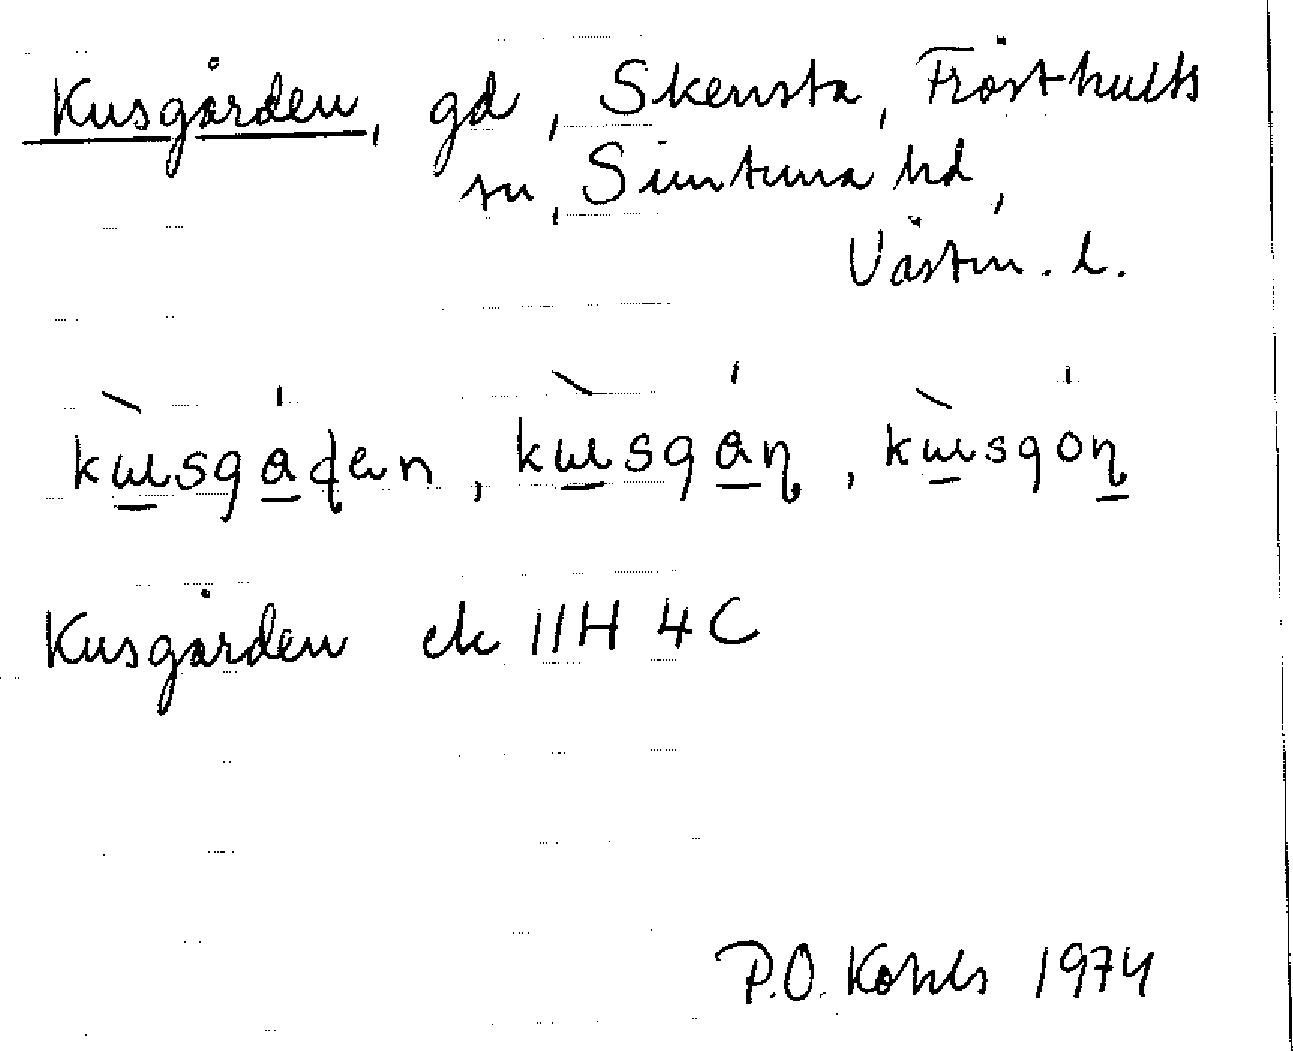 Kusgården, gd, Skensta, Frösthults
sn, Simtuna hd,
Västm. l.
kɯ̀sgáɖən, kɯ̀sgáɳ, kɯ̀sgóɳ
Kusgården ek 11H 4C
P.O. Kohls 1974